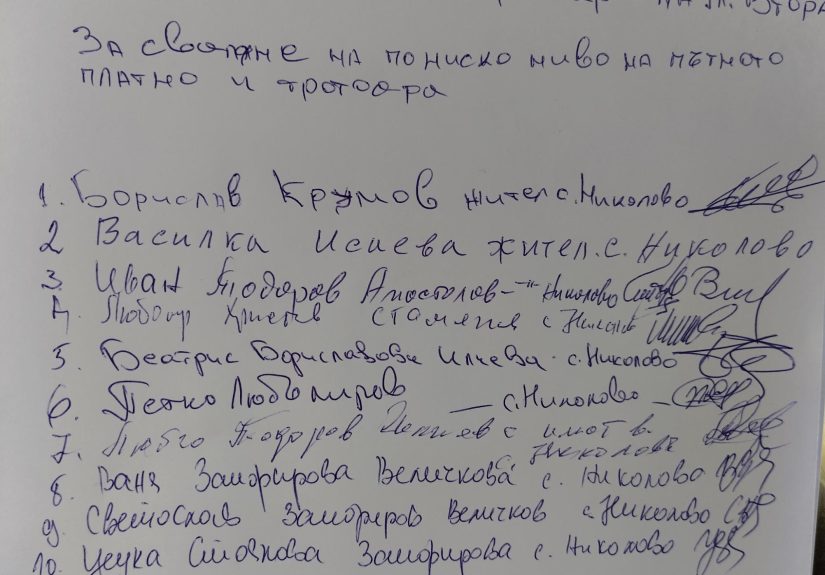 на ул. Втора
За сваляне на пониско ниво на пътното
платно и тротоара
1. Борислав Крумов жител с. Николово
2 Василка Исаева жител. с. Николово
3. Иван Тодоров Апостолов -"- Николово
4. Любомир Христов с
5. Беатрис Бориславова Илчева - с. Николово
6. Петко Любомиров — с. Николово
7. Тодоров с имот в
Николово
8. Ваня Замфирова Величкова с. Николово
9. Светослав Замфиров Величков с. Николово
10. Цеука Стоянова Замфирова с. Николово